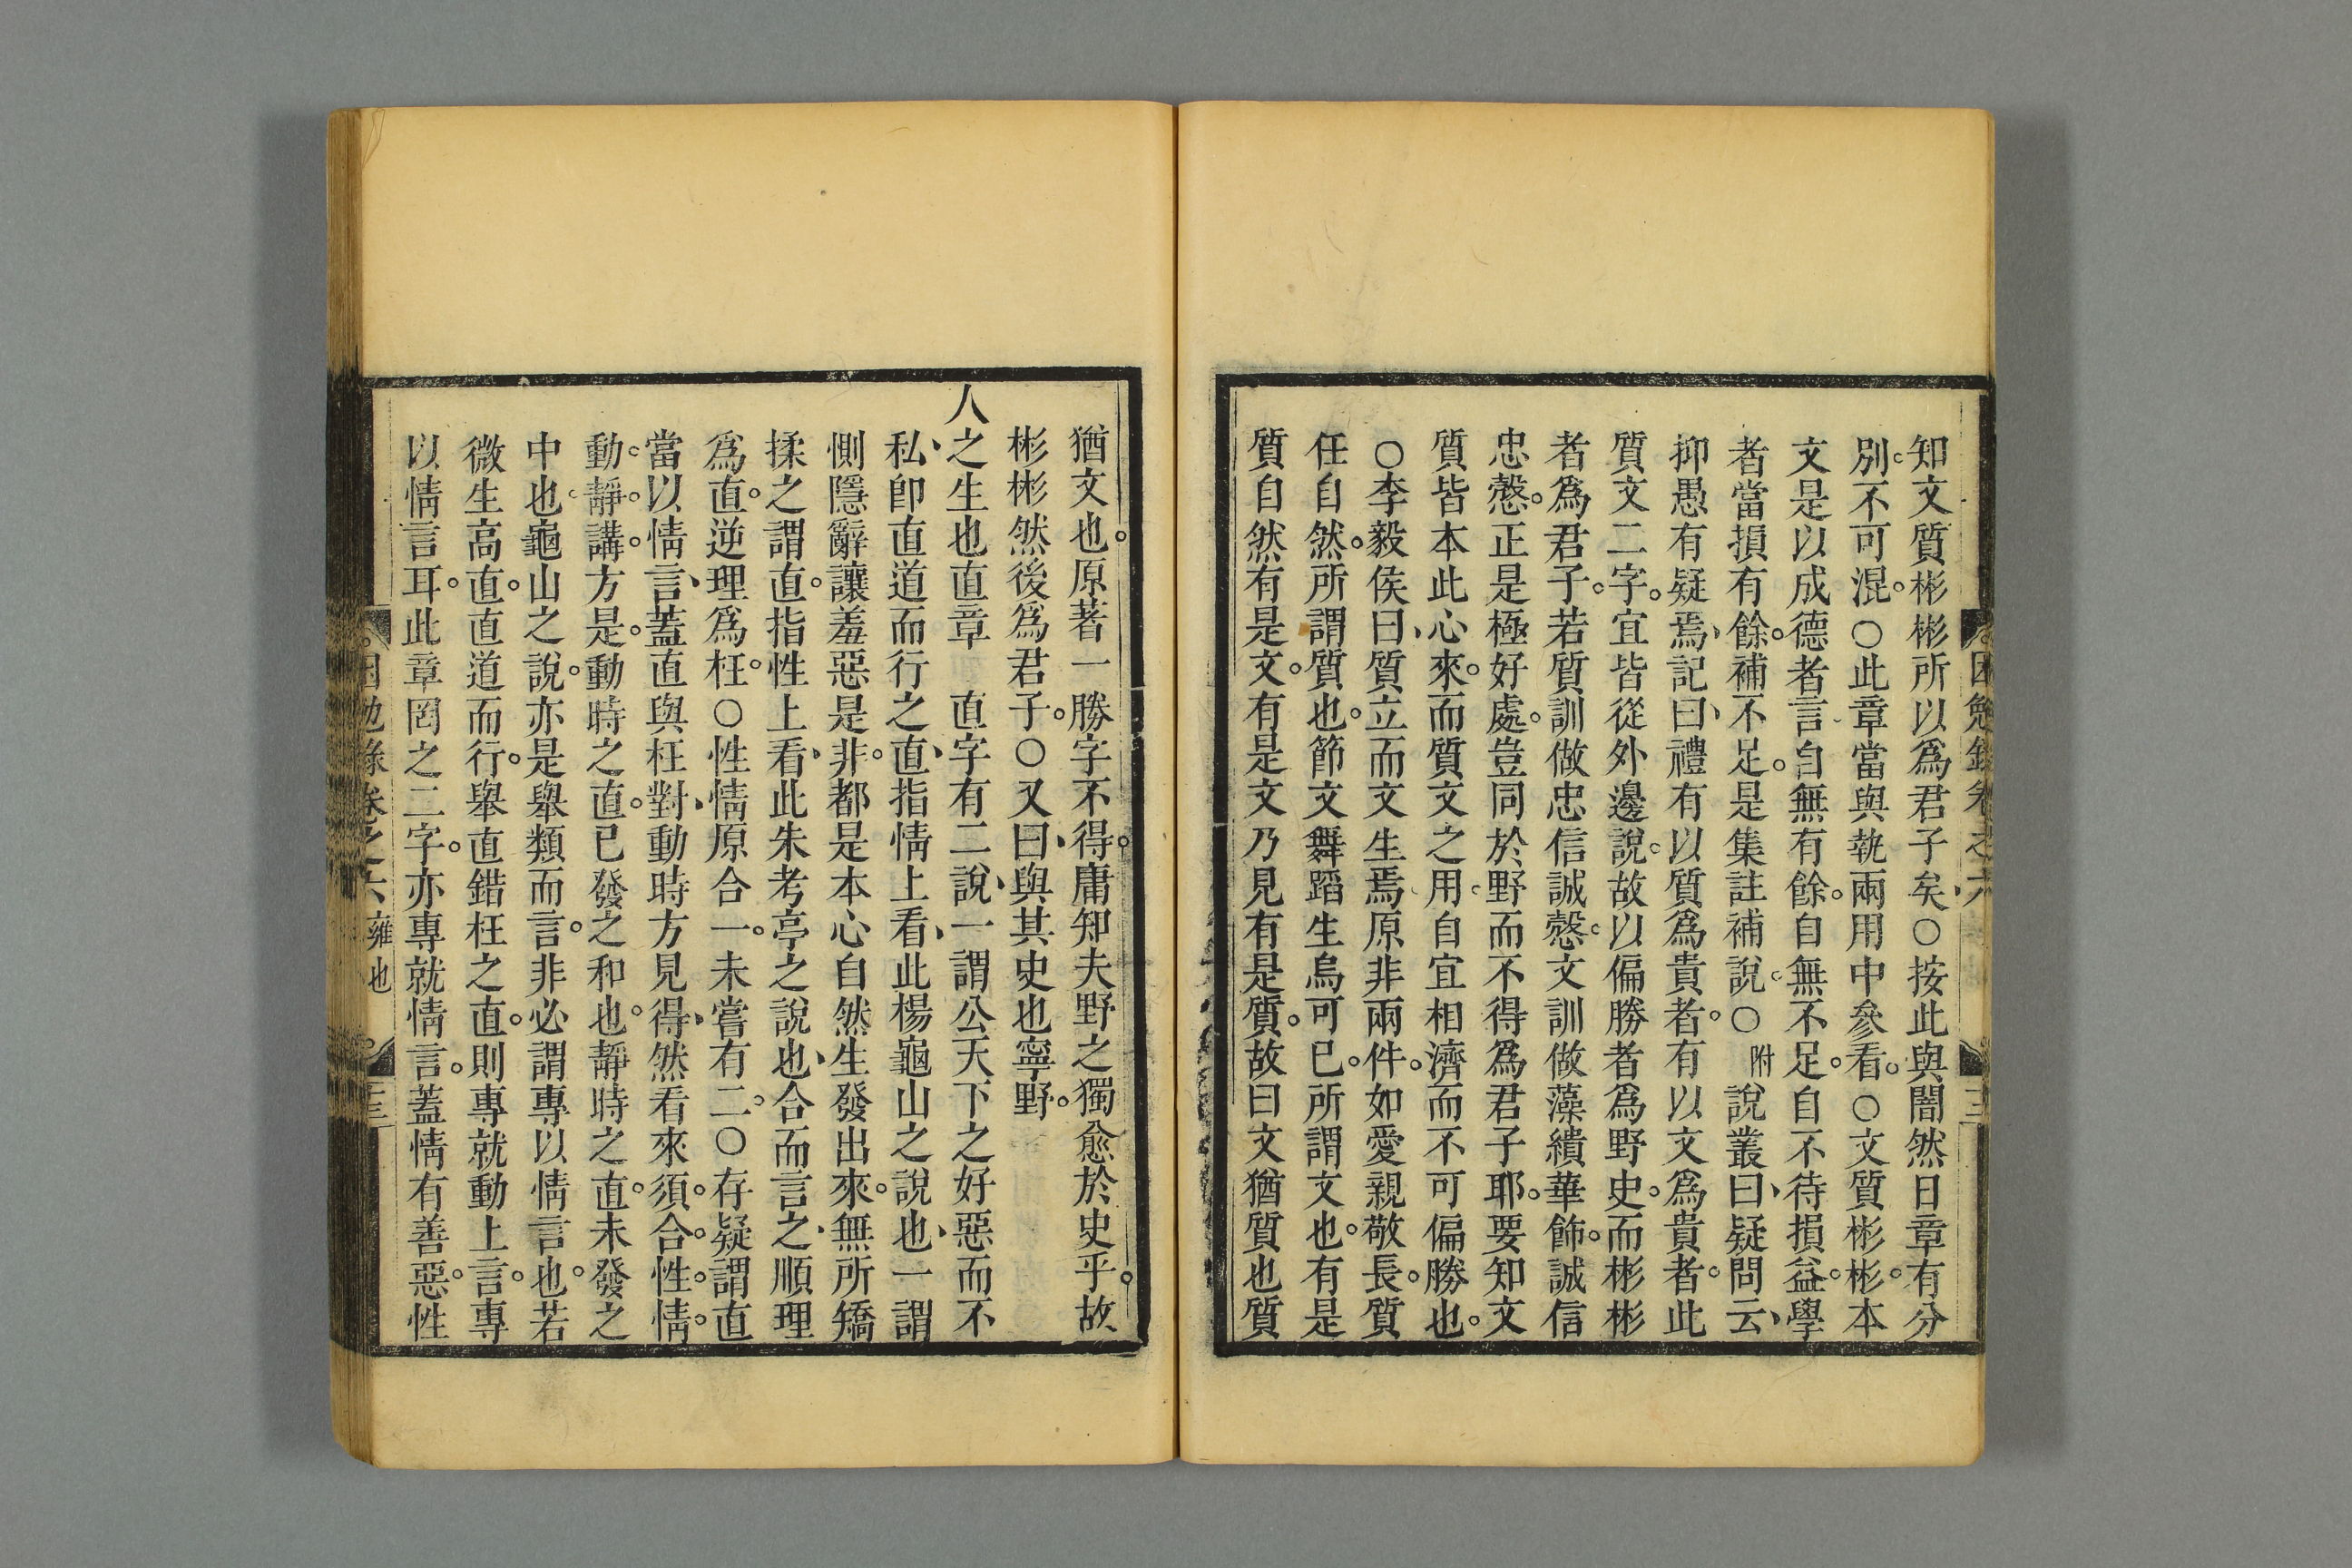 知文質彬彬所以爲君子矣、○按此與闇然日章有分
別。不可混。○此章當與執兩用中參看。○文質彬彬。本
文是以成德者言、自無有餘。自無不足。自不待損益。學
者當損有餘。補不足。是集註補說。○附說叢曰、疑問云、
抑愚有疑焉、記曰、禮有以質爲貴者。有以文爲貴者。此
質文二字。宜皆從外邊說。故以偏勝者爲野史。而彬彬
者爲君子。若質訓做忠信誠慤。文訓做藻繢華飾。誠信
忠慤。正是極好處。豈同於野而不得爲君子耶。要知文
質皆本此心來。而質文之用。自宜相濟而不可偏勝也。
○李毅侯曰、質立而文生焉。原非兩件。如愛親敬長。質
任自然。所謂質也。節文舞蹈生烏可已。所謂文也。有是
質自然有是文。有是文乃見有是質。故曰文猶質也質
猶文也。原著一勝字不得。庸知夫野之獨愈於史乎。故
彬彬然後爲君子。○又曰、與其史也寧野。
人之生也直章　直字有二說、一謂公天下之好惡而不
私、卽直道而行之直、指情上看、此楊龜山之說也、一謂
惻隱辭讓羞惡是非。都是本心自然生發出來。無所矯
揉之謂直。指性上看、此朱考亭之說也、合而言之、順理
爲直。逆理爲枉。○性情原合一。未嘗有二。○存疑謂直
當以情言、蓋直與枉對、動時方見得、然看來須。合。性。情。
動。靜。講。方是。動時之直。已發之和也。靜時之直。未發之
中也。龜山之說。亦是舉類而言。非必謂專以情言也。若
微生高直。直道而行。舉直錯枉之直。則專就動上言。專
以情言耳。此章罔之二字。亦專就情言。蓋情有善惡。性
困勉錄卷之六 雍也